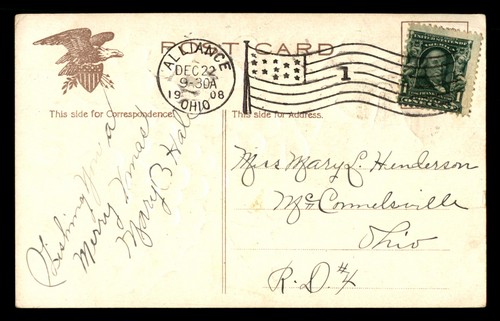 POST CARD
ALLIANCE
DEC 22
9-30A
1908
OHIO
1
This side for Correspondence.
This side for Address.
Wishing you a
Merry Xmas
Mary B Hall
Miss Mary L. Henderson
McConnelsville
Ohio
R.D. #4